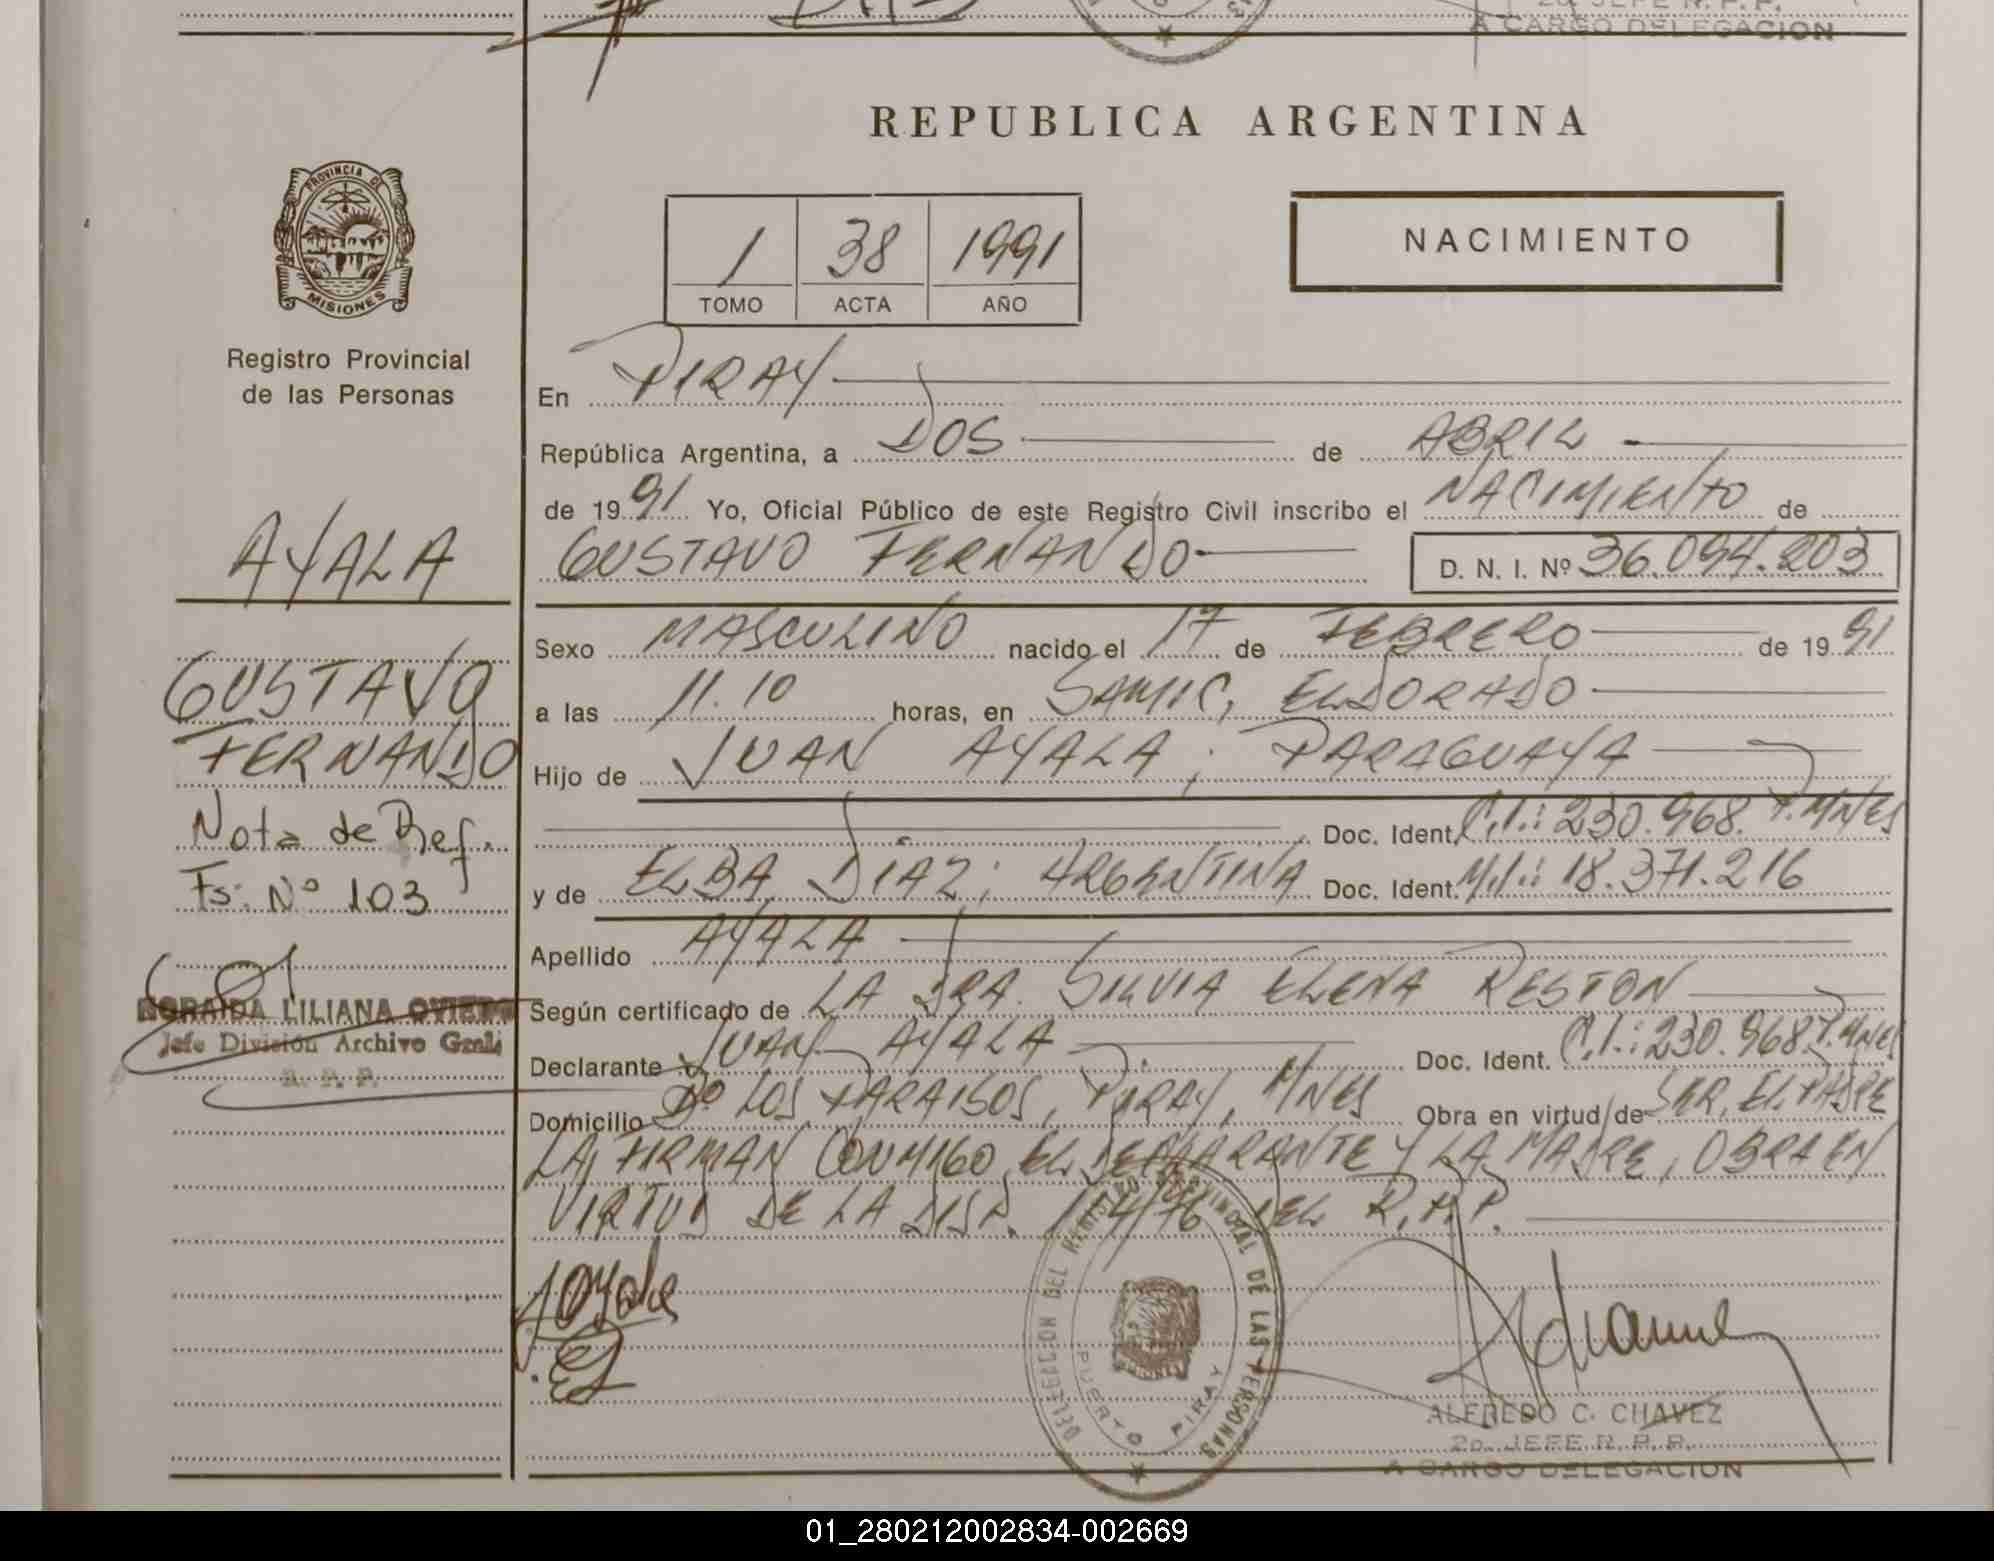 A CARGO DELEGACION
REPUBLICA ARGENTINA
PROVINCIA DE
MISIONES
Registro Provincial
de las Personas
1 38 1991
TOMO ACTA AÑO
NACIMIENTO
En PIRAY
República Argentina, a DOS de ABRIL
de 1991 Yo, Oficial Público de este Registro Civil inscribo el NACIMIENTO de
GUSTAVO FERNANDO D. N. I. Nº 36.094.203
AYALA
GUSTAVO
FERNANDO
Nota de Ref.
Fs: Nº 103
LILIANA
Jefe División Archivo Gral
R. P. P.
Sexo MASCULINO nacido el 17 de FEBRERO de 1991
a las 11.10 horas, en SAMIC, ELDORADO
Hijo de JUAN AYALA; PARAGUAYA
Doc. Ident. C.I.: 230.968. P. MNES
y de ELBA DIAZ; ARGENTINA Doc. Ident. M.I.: 18.371.216
Apellido AYALA
Según certificado de LA DRA. SILVIA ELENA RESTON
Declarante JUAN AYALA Doc. Ident. C.I.: 230.968. P. MNES
Domicilio Bº LOS PARAISOS, PIRAY, MNES Obra en virtud de SER, EL PADRE
LA, FIRMAN CONMIGO EL DECLARANTE Y LA MADRE, OBRA EN
VIRTUD DE LA DISP. 174/76 DEL R.P.P.
DELEGACION DEL REGISTRO PROVINCIAL DE LAS PERSONAS
PUERTO PIRAY
ALFREDO C. CHAVEZ
2o. JEFE R. P. P.
A CARGO DELEGACION
01_280212002834-002669